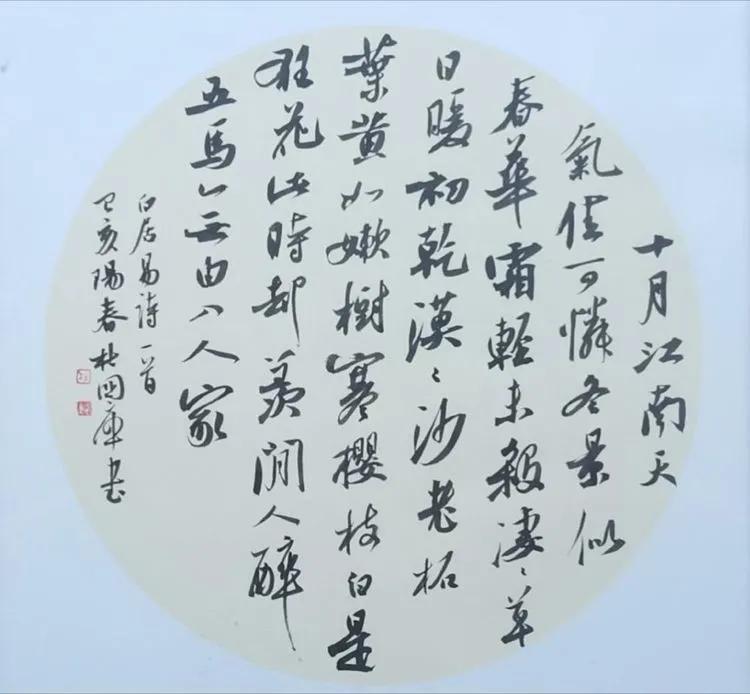 十月江南天
氣佳可憐冬景似
春華霜輕未殺淒〻草
日暖初乾漠〻沙老柘
葉黄如嫩樹寒櫻枝白是
狂花此時却羨閒人醉
五馬無由入人家
白居易詩一首
己亥陽春杜國庫书